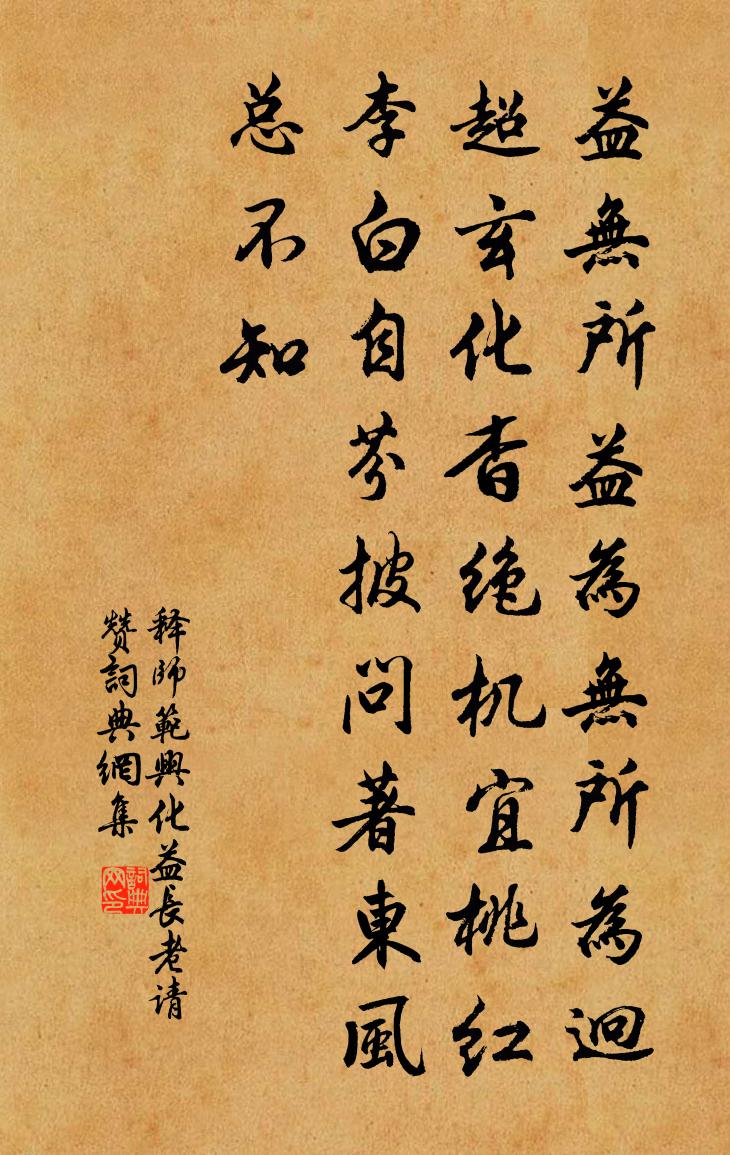 益無所益為無所為迥
超玄化杳绝机宜桃红
李白自芬披问著東風
总不知
释師範興化益長老请
赞詞典網集
詞典网印